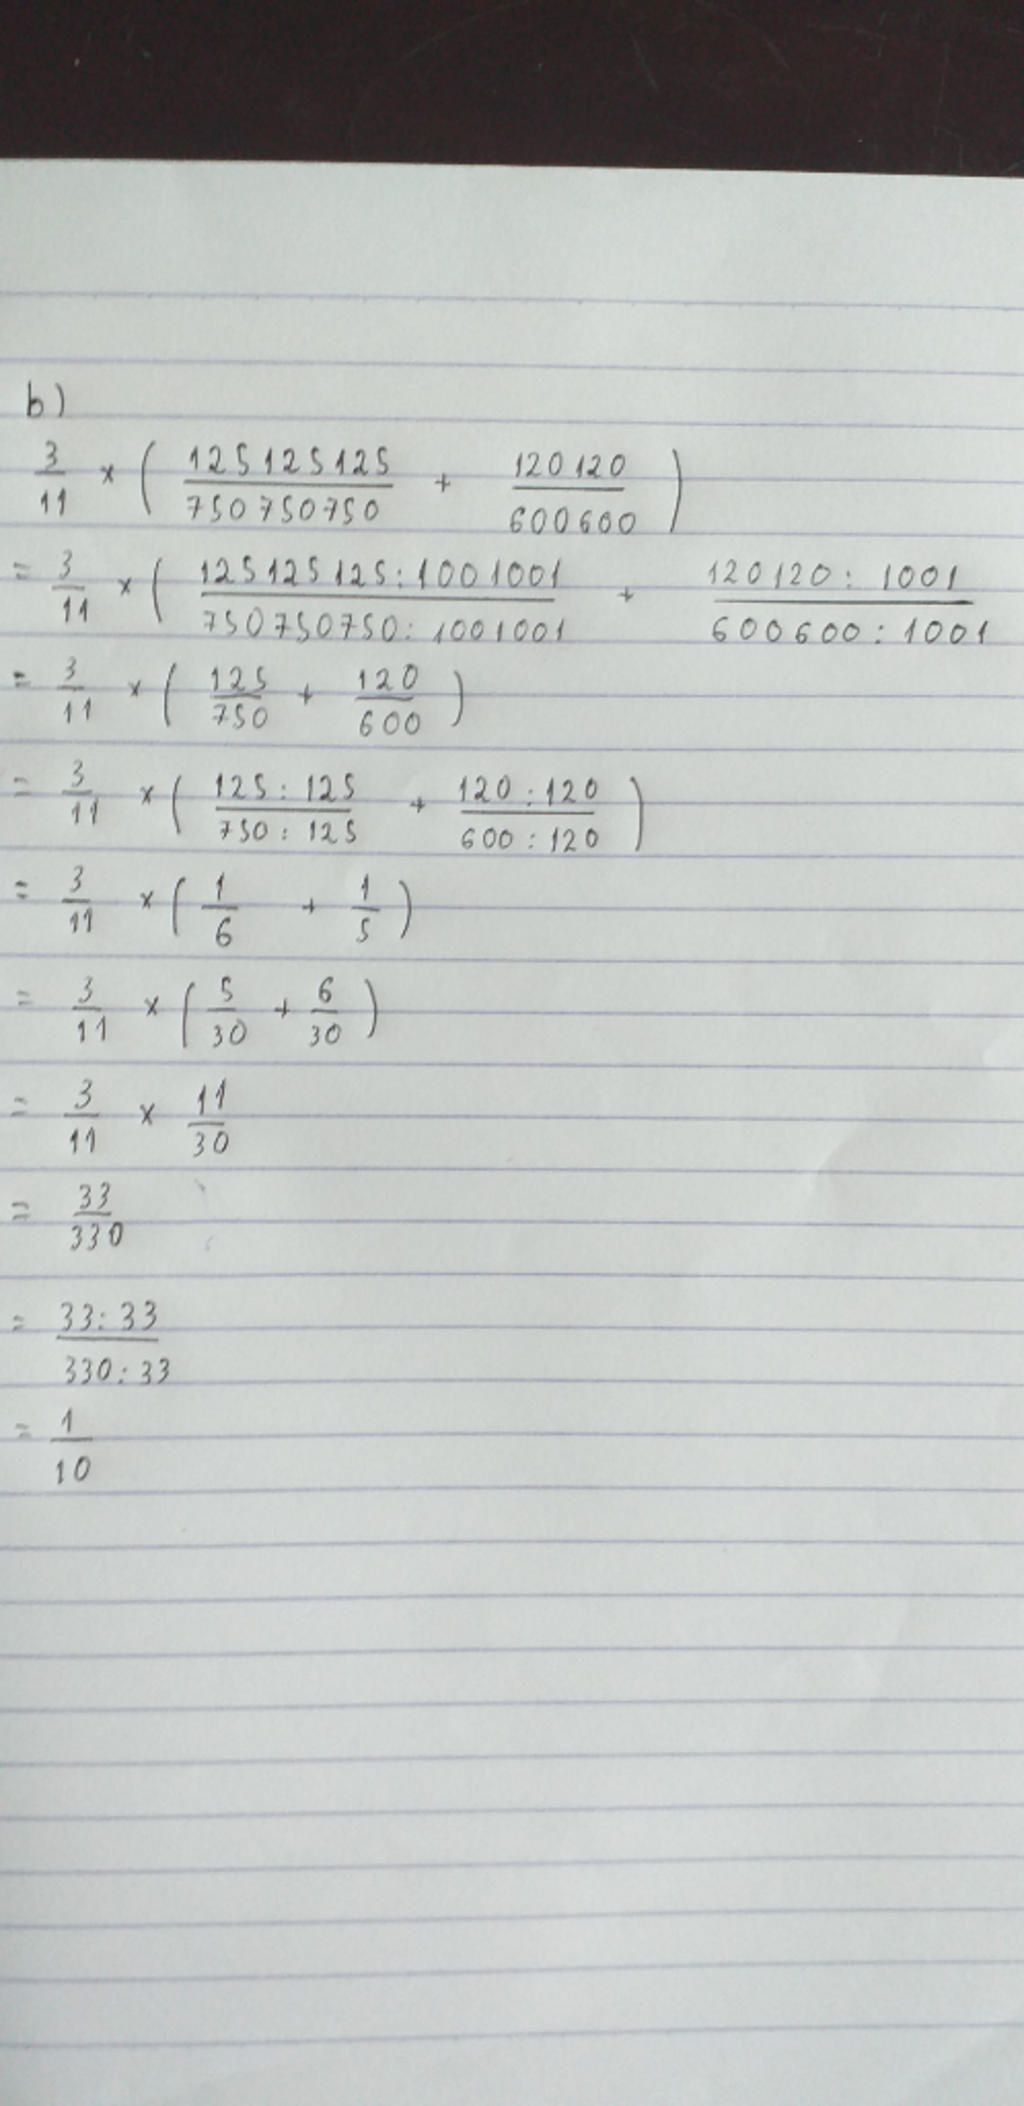 b)
3/11 × ( 125125125/750750750 + 120120/600600 )
= 3/11 × ( 125125125:1001001/750750750:1001001 + 120120:1001/600600:1001
= 3/11 × ( 125/750 + 120/600 )
= 3/11 × ( 125:125/750:125 + 120:120/600:120 )
= 3/11 × ( 1/6 + 1/5 )
= 3/11 × ( 5/30 + 6/30 )
= 3/11 × 11/30
= 33/330
= 33:33/330:33
= 1/10